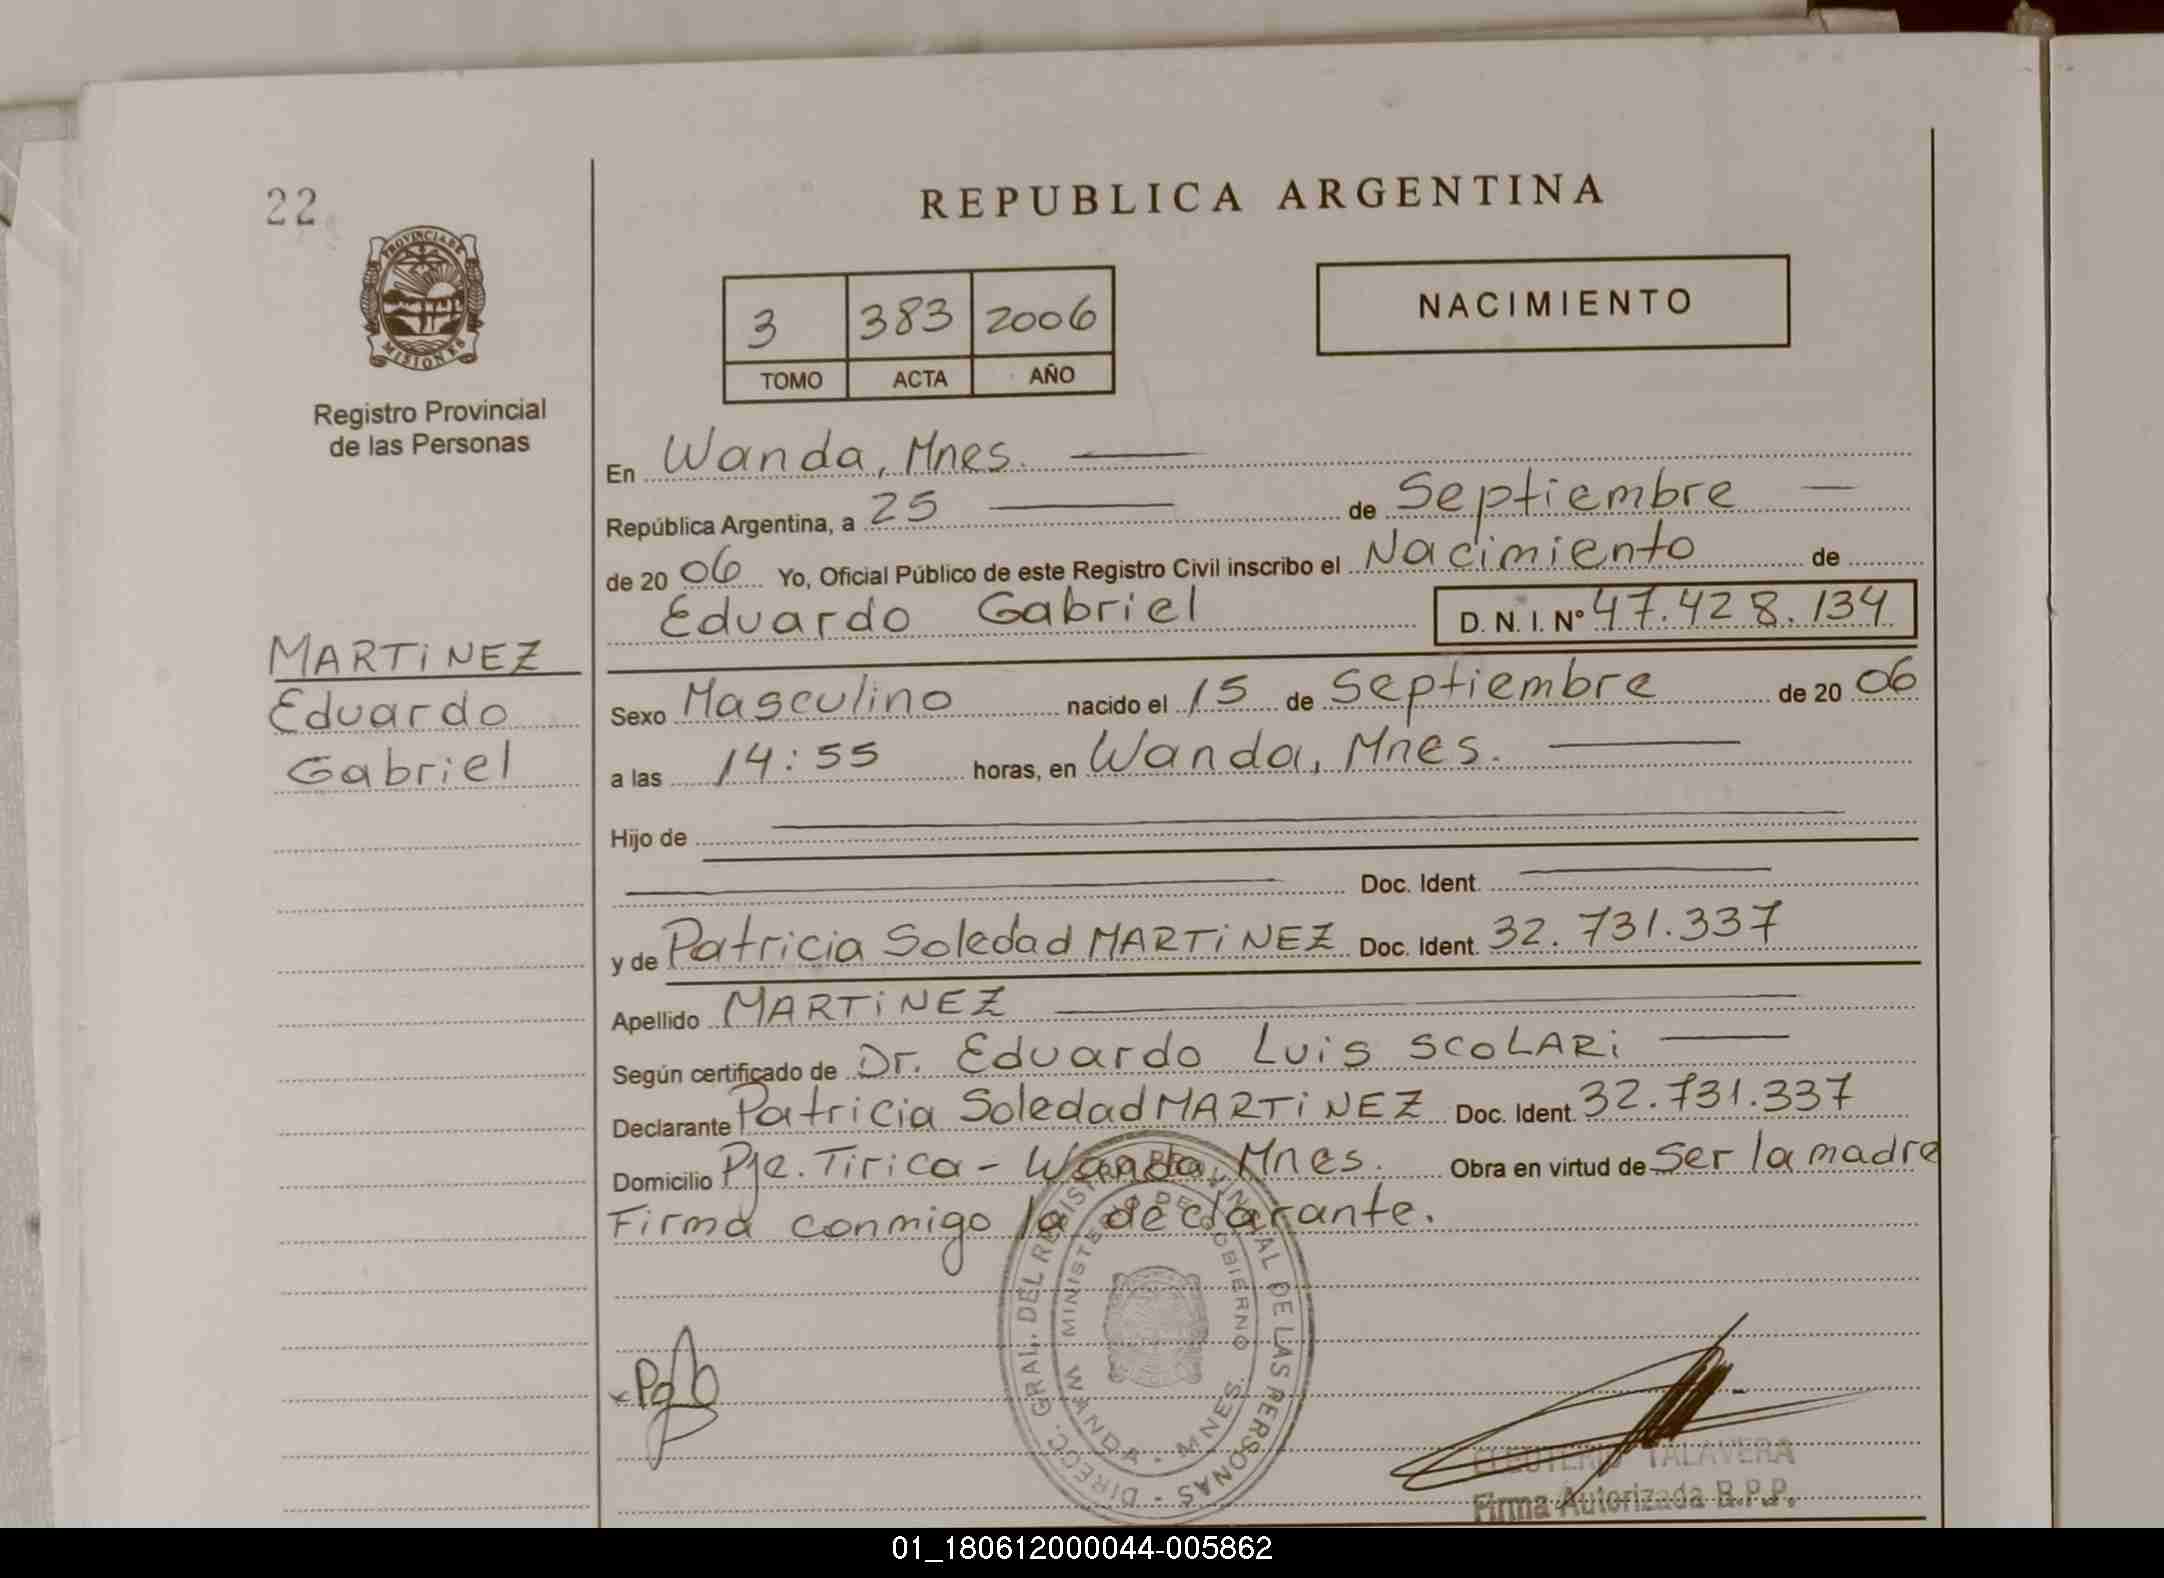 22
PROVINCIA DE
MISIONES
Registro Provincial
de las Personas
MARTiNEZ
Eduardo
Gabriel
REPUBLICA ARGENTINA
3 383 2006
TOMO ACTA AÑO
NACIMIENTO
En Wanda, Mnes.
República Argentina, a 25 de Septiembre
de 20 06 Yo, Oficial Público de este Registro Civil inscribo el Nacimiento de
Eduardo Gabriel D. N. I. Nº 47.428.134
Sexo Masculino nacido el 15 de Septiembre de 20 06
a las 14:55 horas, en Wanda, Mnes.
Hijo de
Doc. Ident.
y de Patricia Soledad MARTiNEZ Doc. Ident. 32.731.337
Apellido MARTiNEZ
Según certificado de Dr. Eduardo Luis SCOLARi
Declarante Patricia Soledad MARTiNEZ Doc. Ident. 32.731.337
Domicilio Pje. Tirica - Wanda, Mnes. Obra en virtud de ser la madre
Firma conmigo la declarante.
DIRECC. GRAL. DEL REGISTRO PROVINCIAL DE LAS PERSONAS
MINISTERIO DE GOBIERNO
WANDA - MNES.
ELEUTERIO TALAVERA
Firma Autorizada R.P.P.
01_180612000044-005862